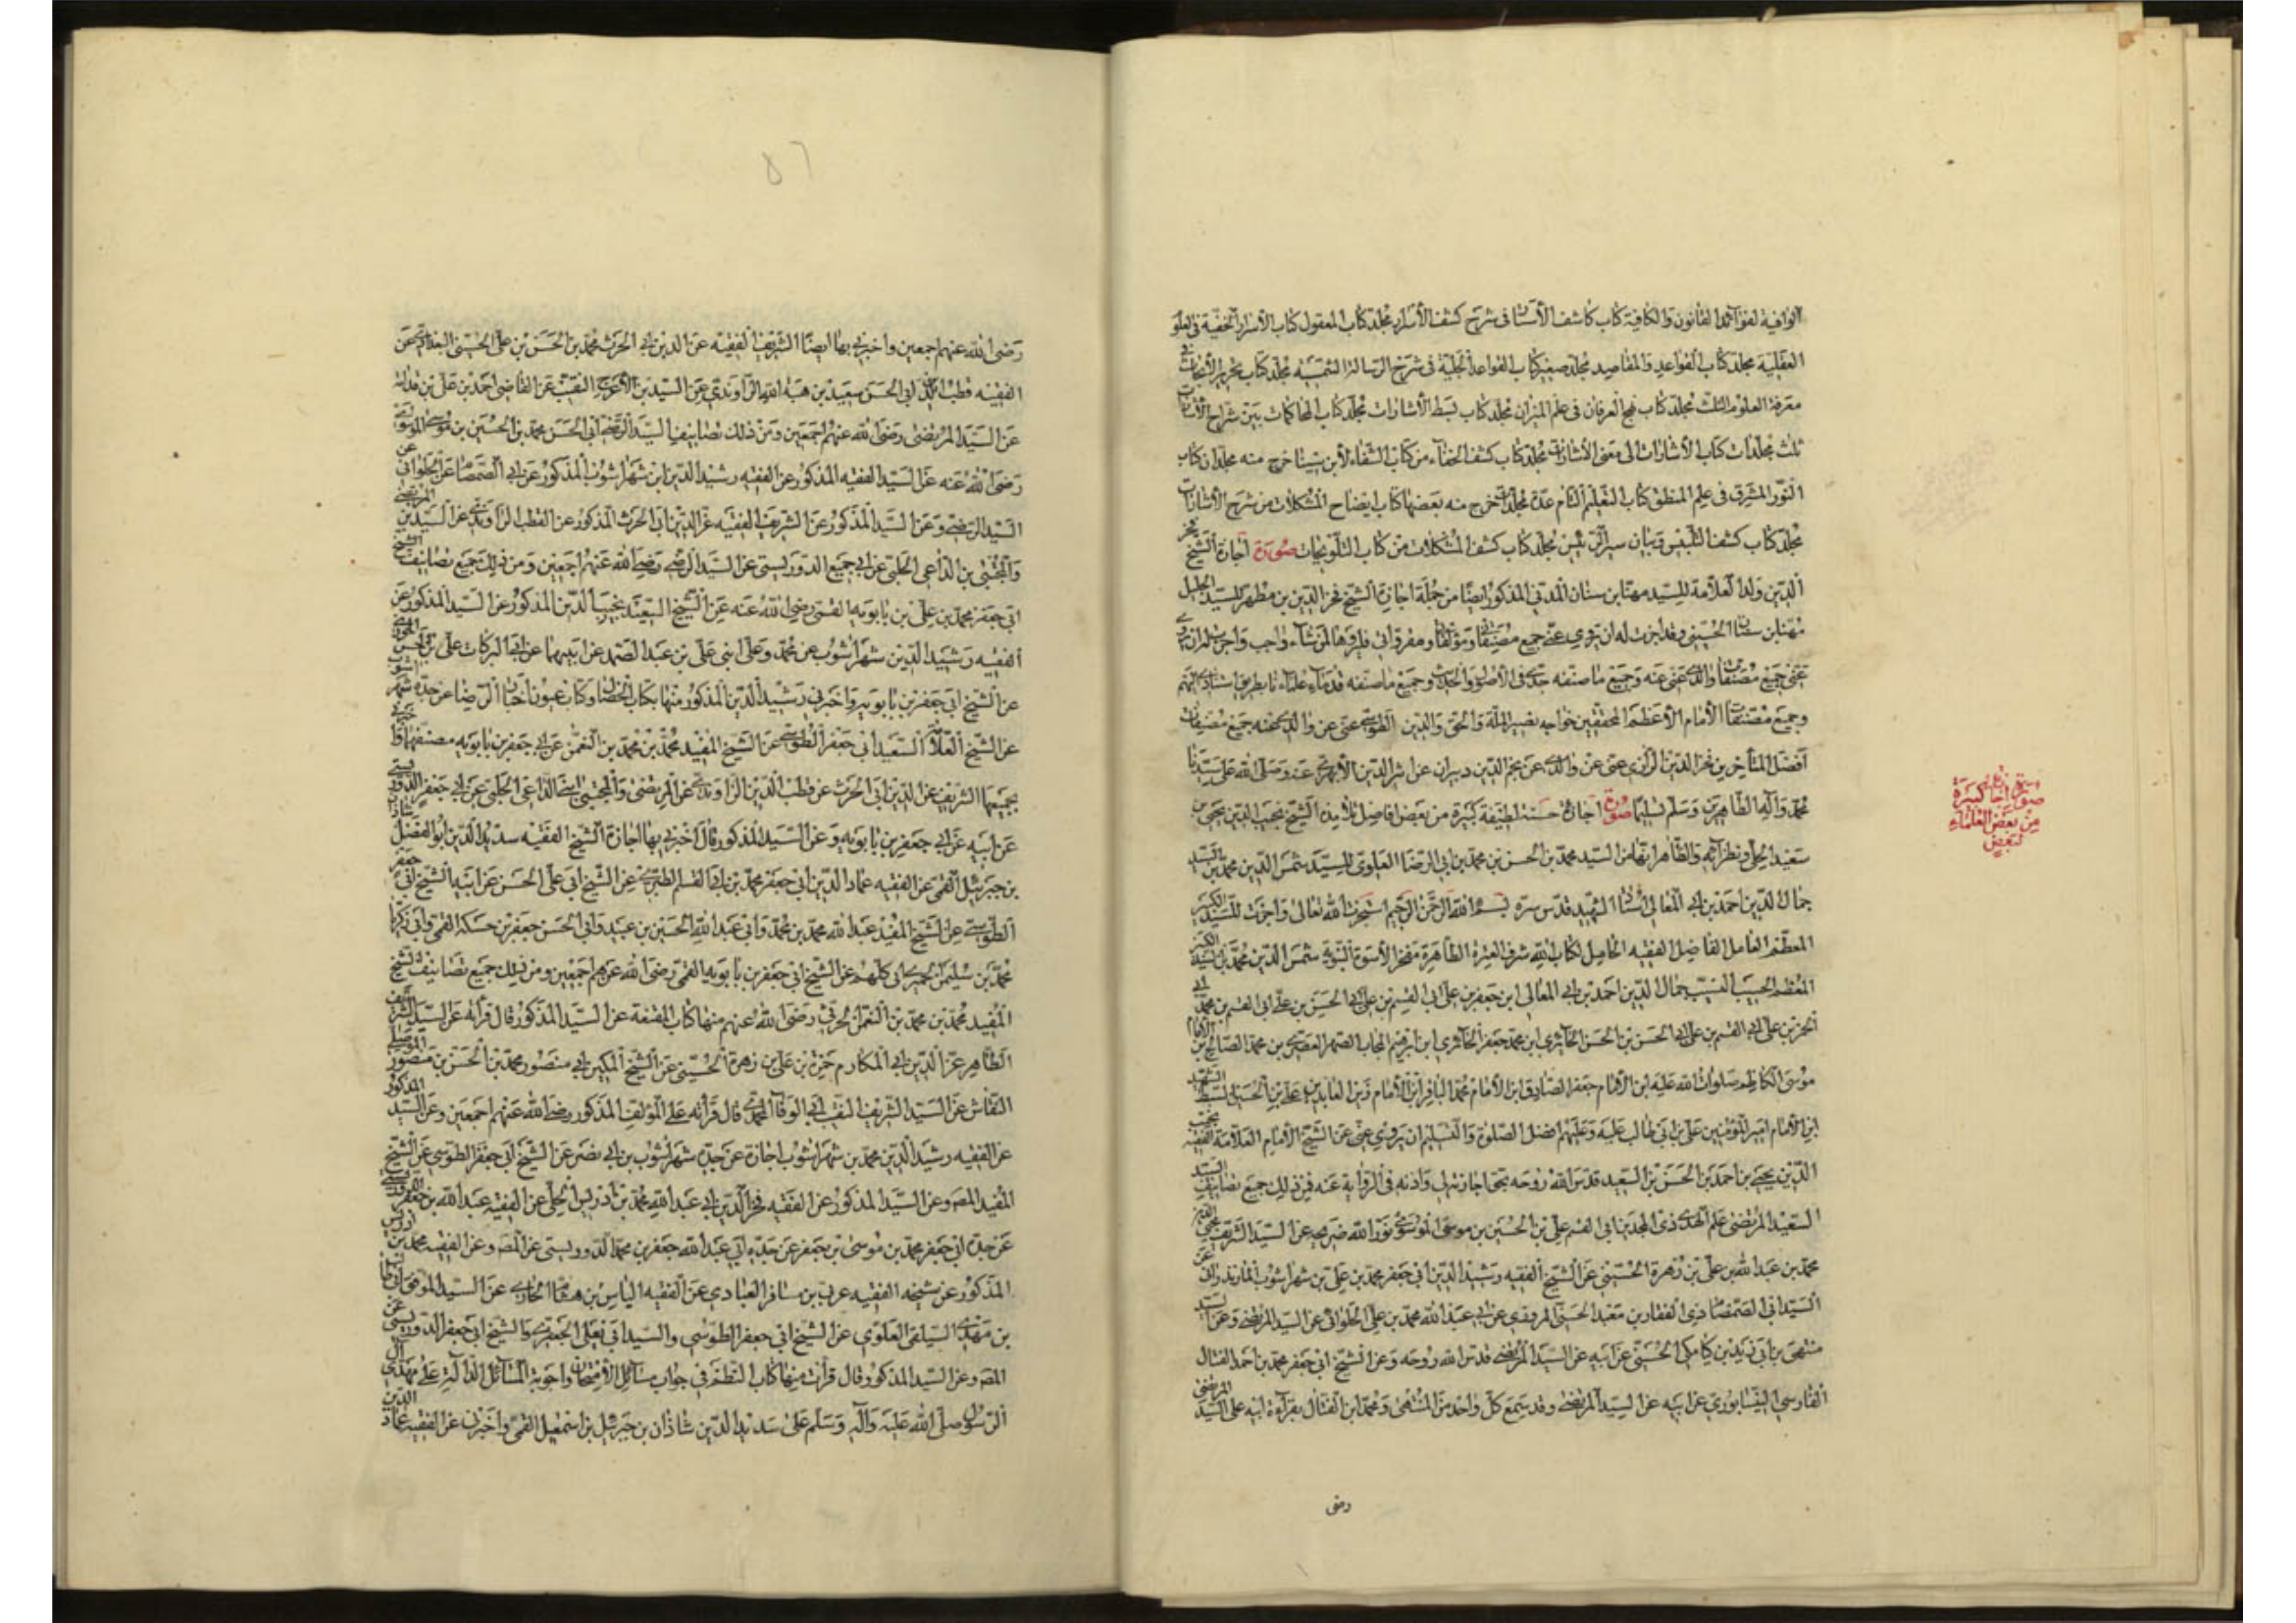 الوافية لفوائد القانون والكافية كتاب كاشف الأستار فى شرح كشف الأسرار مجلد كتاب المعقول كتاب الأسرار الخفية فى العلو
العقلية مجلد كتاب القواعد والمقاصد مجلد صغير كتاب القواعد الجلية فى شرح الرسالة الشمسية مجلد كتاب تحرير الأبحاث فى
معرفة العلوم الثلث مجلد كتاب نهج العرفان فى علم الميزان مجلد كتاب بسط الأشارات مجلد كتاب المحاكمات بين شراح الأشارات
ثلث مجلدات كتاب الأشارات الى معنى الأشارات مجلد كتاب كشف الخفاء من كتاب الشفاء لأبن سينا خرج منه مجلدان كتاب
النور المشرق فى علم المنطق كتاب التعليم التام عدة مجلدات خرج منه بعضها كتاب ايضاح المشكلات من شرح الأشارات
مجلد كتاب كشف التلبيس وبيان سير الرئيس مجلد كتاب كشف المشكلات من كتاب التلويحات صورة اجازة الشيخ فخر
الدين ولد العلامة للسيد مهنا بن سنان المدنى المذكور ايضا من جملة اجازة الشيخ فخر الدين بن مطهر للسيد الجليل
مهنا بن سنان الحسينى وقد اجزت له ان يروى عنى جميع مصنفاتى ومؤلفاتى ومقرواتى فليروها لمن شاء واحب واجزت له ان يروى
عنى جميع مصنفات والدى عنى عنه وجميع ما صنفه جدى فى الأصول والحديث وجميع ما صنفه قدماء علمائنا بطريق اسنادى اليهم
وجميع مصنفات الأمام الأعظم المحققين خواجه نصير الملة والحق والدين الطوسى عنى عن والدى عنه جميع مصنفات
افضل المتأخرين فخر الدين الرازى عنى عن والدى عن نجم الدين دبيران عن اثير الدين الأبهرى عنه وصلى الله على سيدنا
محمد وآله الطاهرين وسلم تسليما صورة اجازة حسنة لطيفة كبيرة من بعض افاضل تلاميذ الشيخ نجيب الدين يحيى بن
سعيد الحلى ونظرائه والظاهر انها من السيد محمد بن الحسن بن محمد بن ابى الرضا العلوى للسيد شمس الدين محمد بن السيد
جمال الدين احمد بن ابى المعالى استاد الشهيد قدس سره بسم الله الرحمن الرحيم استخرت الله تعالى واجزت للسيد الكبير
المعظم العامل الفاضل الفقيه الحامل لكتاب الله شرف العترة الطاهرة مفخر الأسرة النبوية شمس الدين محمد بن السيد الكبير
المعظم الحسيب النسيب جمال الدين احمد بن ابى المعالى ابن جعفر بن على ابى القسم بن على ابى الحسن بن على ابى القسم بن محمد ابى
موسى الكاظم صلوات الله عليه ابن الأمام جعفر الصادق ابن الأمام محمد الباقر ابن الأمام زين العابدين على بن الحسين السبط الشهيد
ابن الأمام امير المؤمنين على بن ابى طالب عليه وعليهم افضل الصلوة والتسليم ان يروى عنى عن الشيخ الأمام العلامة الفقيه نجيب
الدين يحيى بن احمد بن الحسن بن السعيد قدس الله روحه بحق اجازته لى واذنه فى الرواية عنه فمن ذلك جميع تصانيف السيد
السعيد المرتضى علم الهدى ذى المجدين ابى القسم على بن الحسين بن موسى الموسوى نور الله ضريحه عن السيد الشريف محيى الدين
محمد بن عبد الله بن على بن زهرة الحسينى عن الشيخ الفقيه رشيد الدين ابى جعفر محمد بن على بن شهراشوب المازندرانى عن
السيد ابى الصمصام ذى الفقار بن معبد الحسنى المروزى عن ابى عبد الله محمد بن على الحلوانى عن السيد المرتضى وعن السيد
منتهى بن ابى زيد بن كيابكى الحسينى عن ابيه عن السيد المرتضى قدس الله روحه وعن الشيخ ابى جعفر محمد بن احمد الفتال
الفارسى النيسابورى عن ابيه عن السيد المرتضى وقد سمع كل واحد من المنتهى ومحمد ابن الفتال بقراءة ابيه على السيد المرتضى
رضى
صورة اجازة كبيرة
من بعض العلماء
لبعض
رضى الله عنهم اجمعين واخبرنى بها ايضا الشريف الفقيه عز الدين ابى الحرث محمد بن الحسن بن على الحسينى البغدادى عن
الفقيه قطب الدين ابى الحسن سعيد بن هبة الله الراوندى عن السيد بن الأعرج النقيب عن القاضى احمد بن على بن قدامة
عن السيد المرتضى رضى الله عنهم اجمعين ومن ذلك تصانيف السيد الرضى ابى الحسن محمد بن الحسين بن موسى الموسوى
رضى الله عنه عن السيد الفقيه المذكور عن الفقيه رشيد الدين ابن شهراشوب المذكور عن ابى الصمصام عن الحلوانى عن
السيد الرضى وعن السيد المذكور عن الشريف الفقيه عز الدين ابى الحرث المذكور عن القطب الراوندى عن السيدين المرتضى
والمجتبى بن الداعى الحلبى عن ابى جعفر الدوريستى عن السيد الرضى رضى الله عنهم اجمعين ومن ذلك جميع تصانيف الشيخ
ابى جعفر محمد بن على بن بابويه القمى رضى الله عنه عن الشيخ السعيد نجيب الدين المذكور عن السيد المذكور عن
الفقيه رشيد الدين شهراشوب عن محمد وعلى ابنى على بن عبد الصمد عن ابيهما عن ابى البركات على بن الحسين الجوزى
عن الشيخ ابى جعفر بن بابويه واخبرنى رشيد الدين المذكور منها بكتاب الخصال وكتاب عيون اخبار الرضا عن جده شهراشوب
عن الشيخ العلامة السعيد ابى جعفر الطوسى عن الشيخ المفيد محمد بن محمد بن النعمن عن ابى جعفر بن بابويه مصنفها واخبرنى
بجميعها الشريف عز الدين ابى الحرث عن قطب الدين الراوندى عن المرتضى والمجتبى ابنى الداعى الحلبى عن ابى جعفر الدوريستى
عن ابيه عن ابى جعفر بن بابويه وعن السيد المذكور قال اخبرنى بها اجازة الشيخ الفقيه سديد الدين ابو الفضل شاذان
بن جبرئيل القمى عن الفقيه عماد الدين ابى جعفر محمد بن ابى القسم الطبرى عن الشيخ ابى على الحسن عن ابيه الشيخ ابى جعفر
الطوسى عن الشيخ المفيد عبد الله محمد بن محمد وابى عبد الله الحسين بن عبيد وابى الحسن جعفر بن حسكه القمى وابى زكريا
محمد بن سليمن الحمرانى كلهم عن الشيخ ابى جعفر بن بابويه القمى رضى الله عنهم اجمعين ومن ذلك جميع تصانيف الشيخ
المفيد محمد بن محمد بن النعمن الحرثى رضى الله عنهم منها كتاب المقنعة عن السيد المذكور قال قرأته عن السيد الشريف
الطاهر عز الدين ابى المكارم حمزة بن على بن زهرة الحسينى عن الشيخ المكين ابى منصور محمد بن الحسن بن منصور الموصلى
النقاش عن السيد الشريف النقيب ابى الوفا المحمدى قال قرأته على المؤلف المذكور رضى الله عنهم اجمعين وعن السيد المذكور
عن الفقيه رشيد الدين محمد بن شهراشوب اجازة عن جده شهراشوب بن ابى نصر عن الشيخ ابى جعفر الطوسى عن الشيخ
المفيد المصـ وعن السيد المذكور عن الفقيه فخر الدين ابى عبد الله محمد بن ادريس الحلى عن الفقيه عبد الله بن جعفر الدوريستى
عن جده ابى جعفر محمد بن موسى بن جعفر عن جده ابى عبد الله جعفر بن محمد الدوريستى عن المصـ وعن الفقيه محمد بن ادريس
المذكور عن شيخه الفقيه عربى بن مسافر العبادى عن الفقيه الياس بن هشام الحائرى عن السيد الموفق ابى طالب
بن مهدى السيلقى العلوى عن الشيخ ابى جعفر الطوسى والسيد ابى يعلى الجعفرى والشيخ ابى جعفر الدوريستى عن
المصـ وعن السيد المذكور قال قرأت منها كتاب النظم فى جواب مسائل الامتحان واجوبة المسائل الدالة على مهدى آل
الرسول صلى الله عليه وآله وسلم على سديد الدين شاذان بن جبرئيل بن اسمعيل القمى واخبرنى عن الفقيه عماد الدين